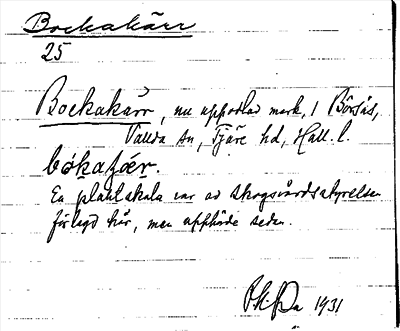 Bockakärr
25
Bockakärr, nu uppodlad mark, i Börsås,
Vallda sn, Fjäre hd, Hall. l.
En plantskola var av Skogsvårdsstyrelsen
förlagd här, men upphörde sedan.
1931